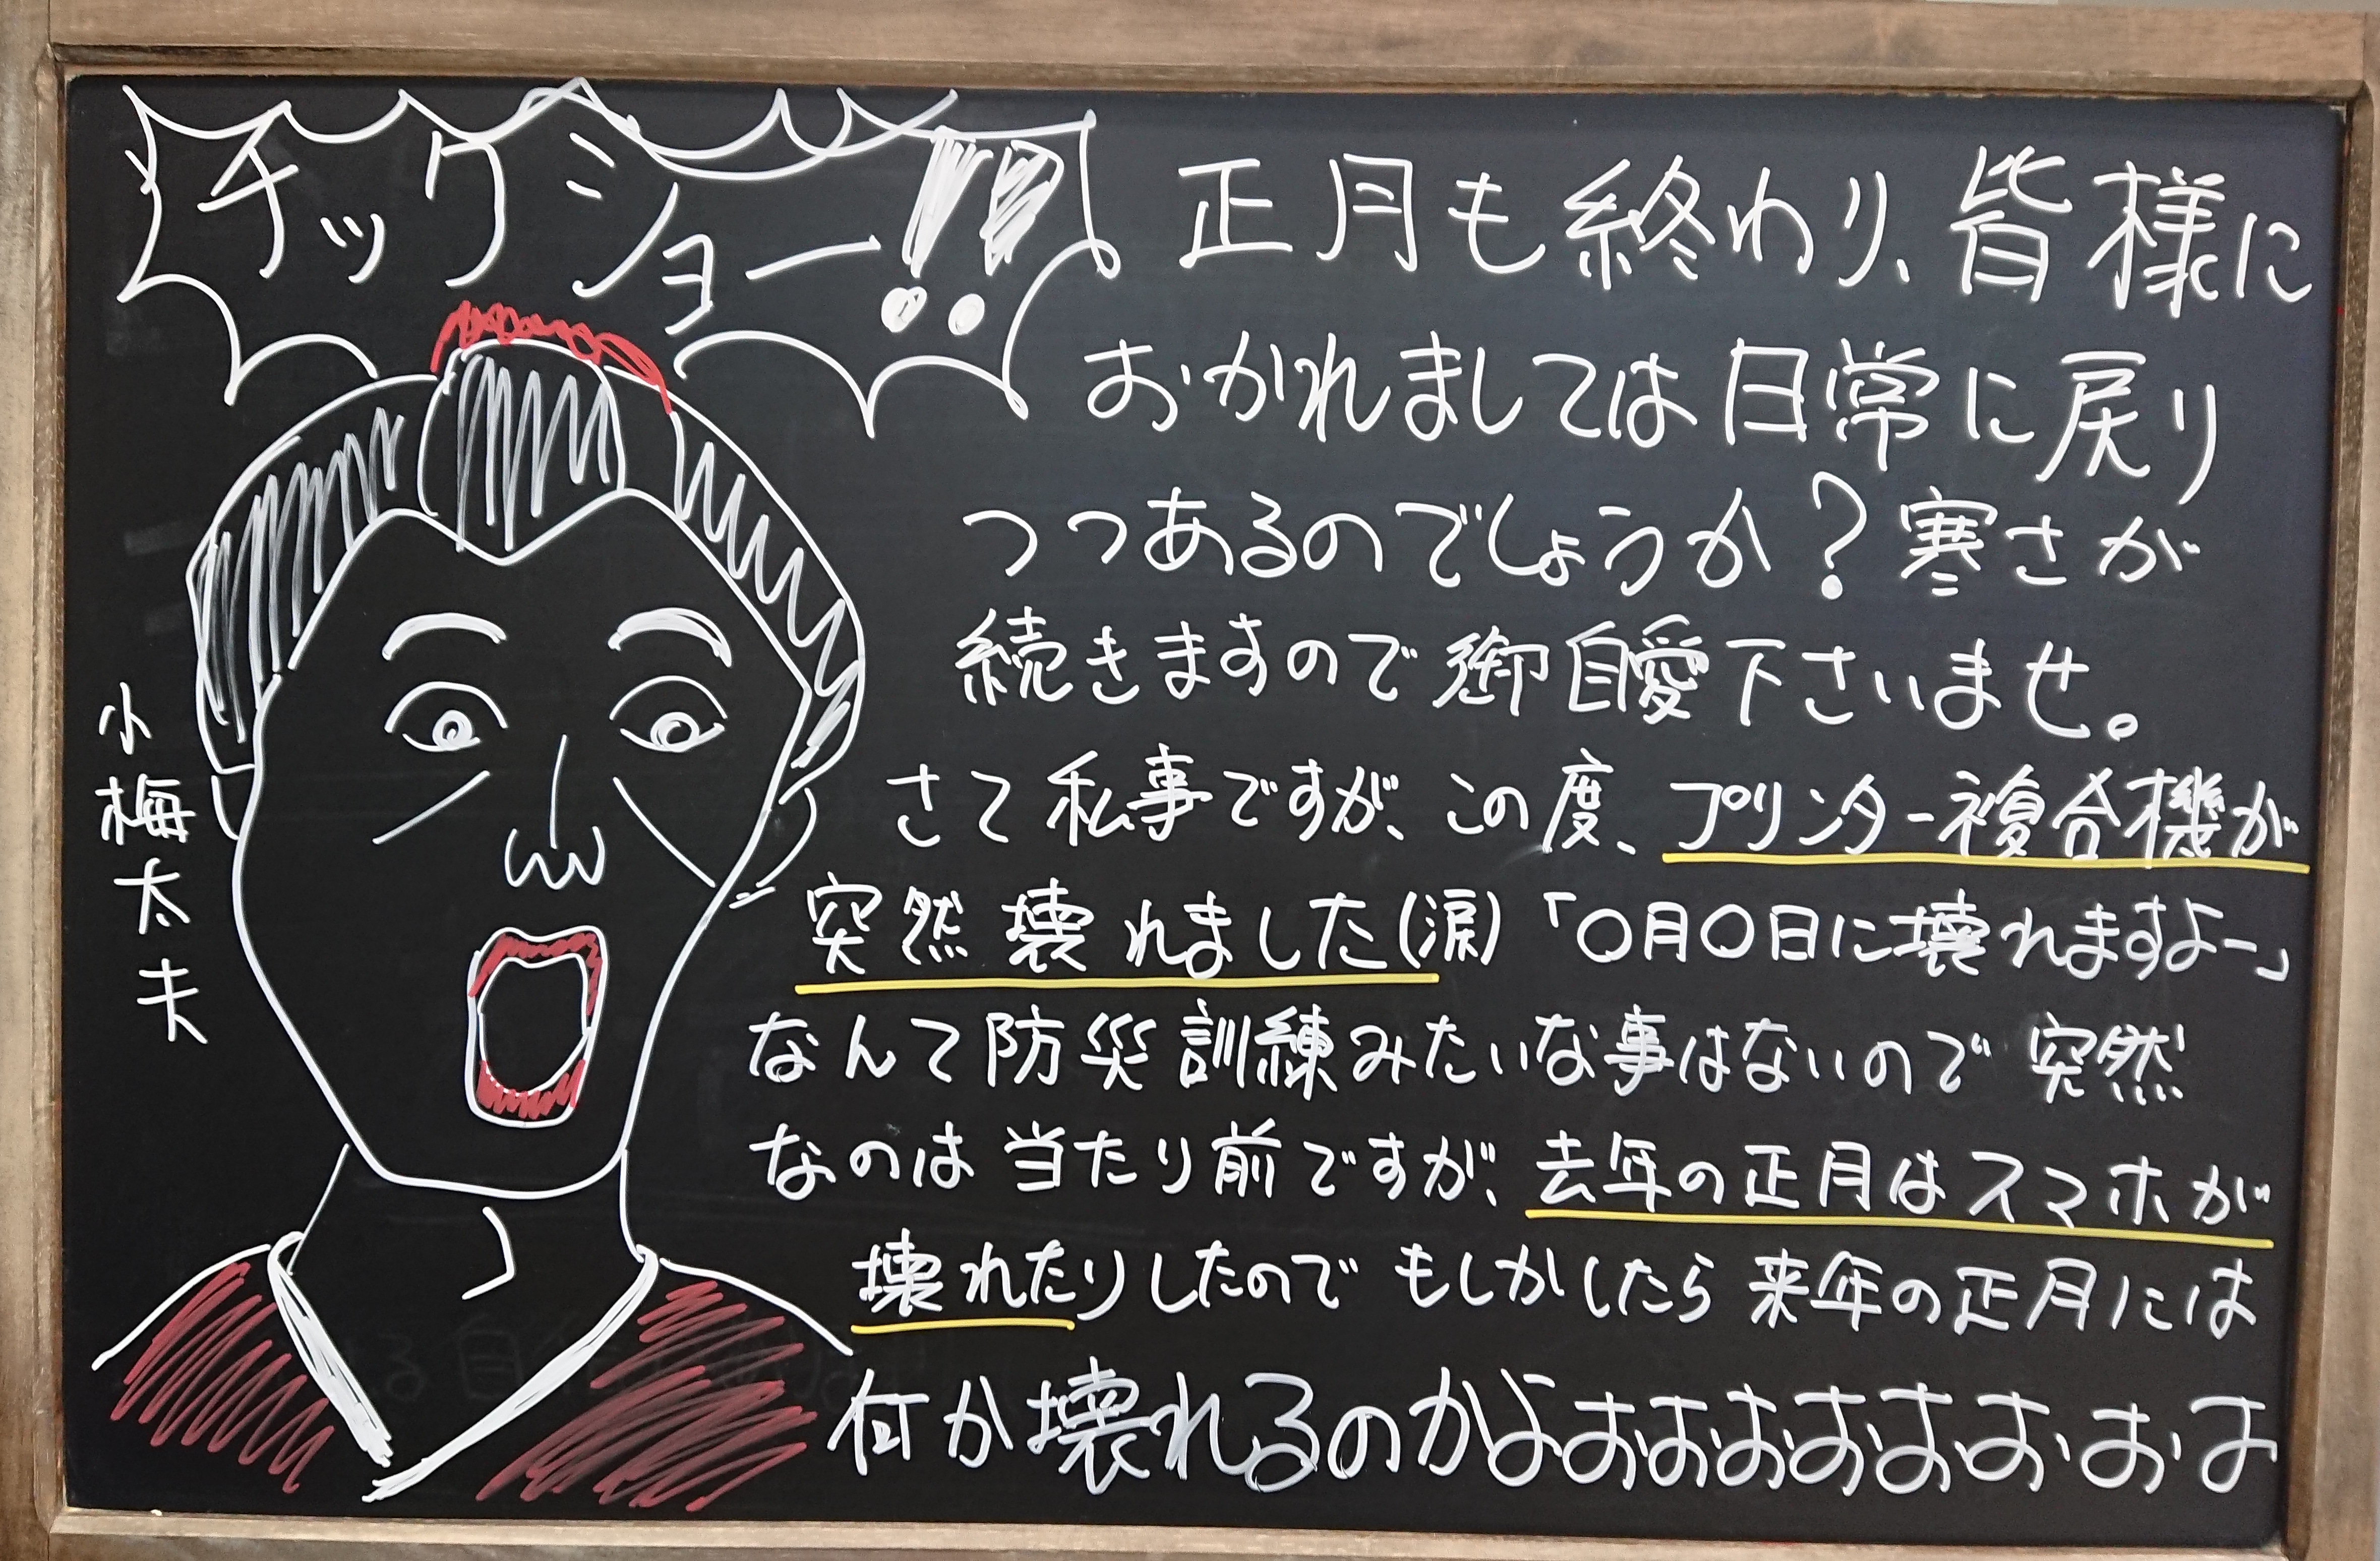 チックショー!!
正月も終わり、皆様に
おかれましては日常に戻り
つつあるのでしょうか？寒さが
続きますので御自愛下さいませ。
さて私事ですが、この度、プリンター複合機が
突然壊れました(涙)「〇月〇日に壊れますよー」
なんて防災訓練みたいな事はないので突然
なのは当たり前ですが、去年の正月はスマホが
壊れたりしたのでもしかしたら来年の正月には
何か壊れるのかよおおおおおおおお
小梅太夫